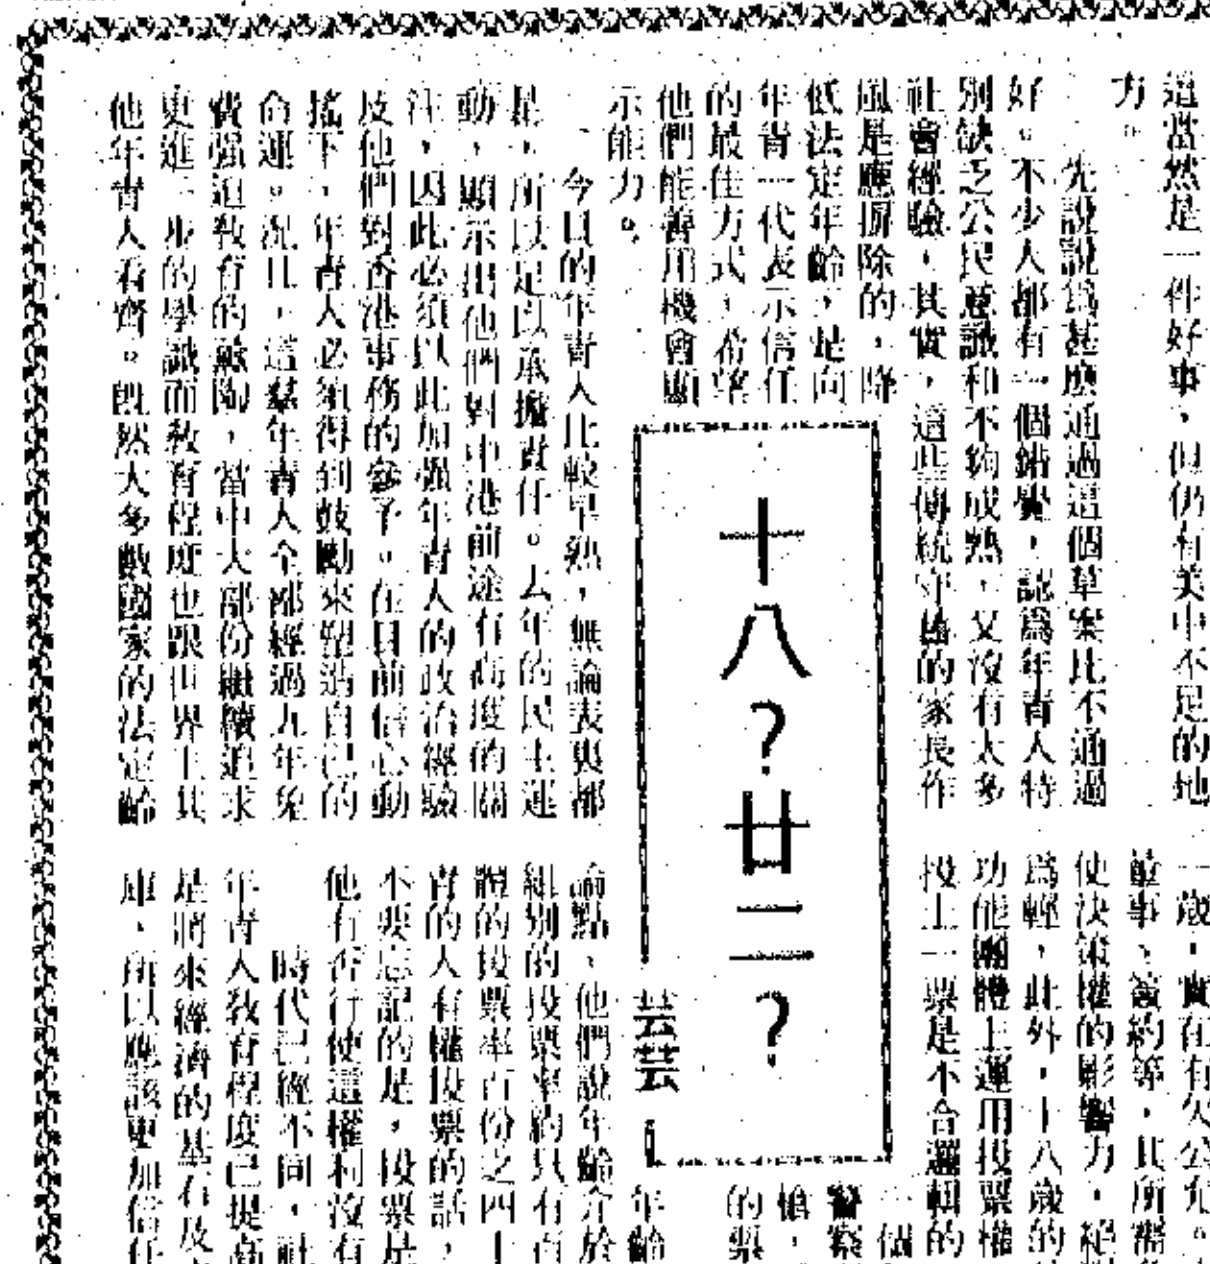 這當然是一件好事，但仍有美中不足的地
方。
先說說爲甚麽通過這個草案比不通過
好。不少人都有一個錯覺，認爲年青人特
別缺乏公民意識和不夠成熟，又沒有太多
社會經驗，其實，這些傳統守舊的家長作
風是應摒除的，降
低法定年齡，是向
年青一代表示信任
的最佳方式，希望
他們能善用機會顯
示能力。
今日的年青人比較早熟，無論表與都
是，所以足以承擔責任。去年的民主運
動，顯示出他們對中港前途有高度的關
注，因此必須以此加强年青人的政治經驗
及他們對香港事務的參予。在目前信心動
搖下，年青人必須得到鼓勵來塑造自己的
命運。況且，這羣年青人全部經過九年免
費强迫敎育的薰陶，當中大部份繼續追求
更進一步的學識而敎育程度也跟世界上其
他年青人看齊。旣然大多數國家的法定齡
十八？廿二？
芸芸
一歲，實在有欠公允。
董事、簽約等，其所需
使決策權的影響力，絕對
爲輕，此外，十八歲的
功能團體上運用投票權
投上一票是不合邏輯的
個
警察
槍，
的票
年齡
論點，他們說年齡介於
組別的投票率約只有百
體的投票率百份之四十
青的人有權投票的話，
不要忘記的是，投票是
他有否行使這權利沒有
時代已經不同，社
年青人敎育程度已提高
是將來經濟的基石及
庫，所以應該更加信任